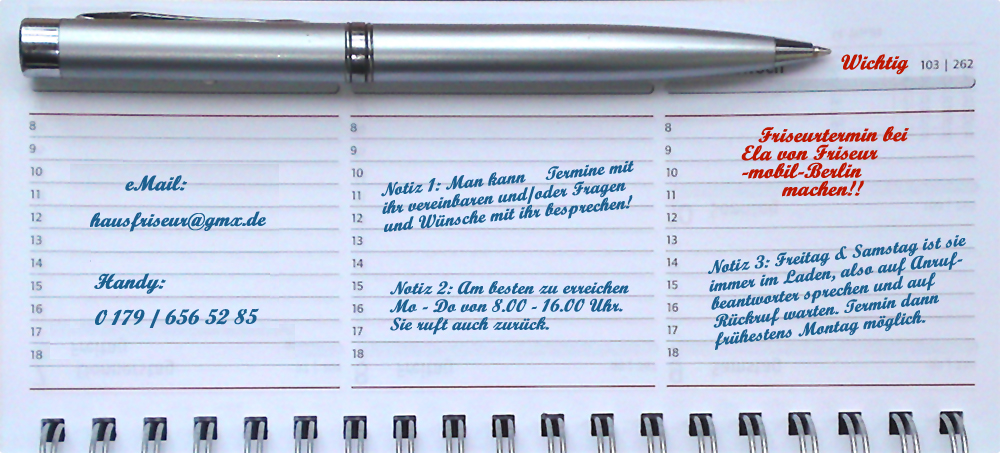 Wichtig 103 | 262
8
9
10
11
12
13
14
15
16
17
18
eMail:
hausfriseur@gmx.de
Handy:
0 179 / 656 52 85
8
9
10
11
12
13
14
15
16
17
18
Notiz 1: Man kann Termine mit
ihr vereinbaren und/oder Fragen
und Wünsche mit ihr besprechen!
Notiz 2: Am besten zu erreichen
Mo - Do von 8.00 - 16.00 Uhr.
Sie ruft auch zurück.
8
9
10
11
12
13
14
15
16
17
18
Friseurtermin bei
Ela von Friseur
-mobil-Berlin
machen!!
Notiz 3: Freitag & Samstag ist sie
immer im Laden, also auf Anruf-
beantworter sprechen und auf
Rückruf warten. Termin dann
frühestens Montag möglich.